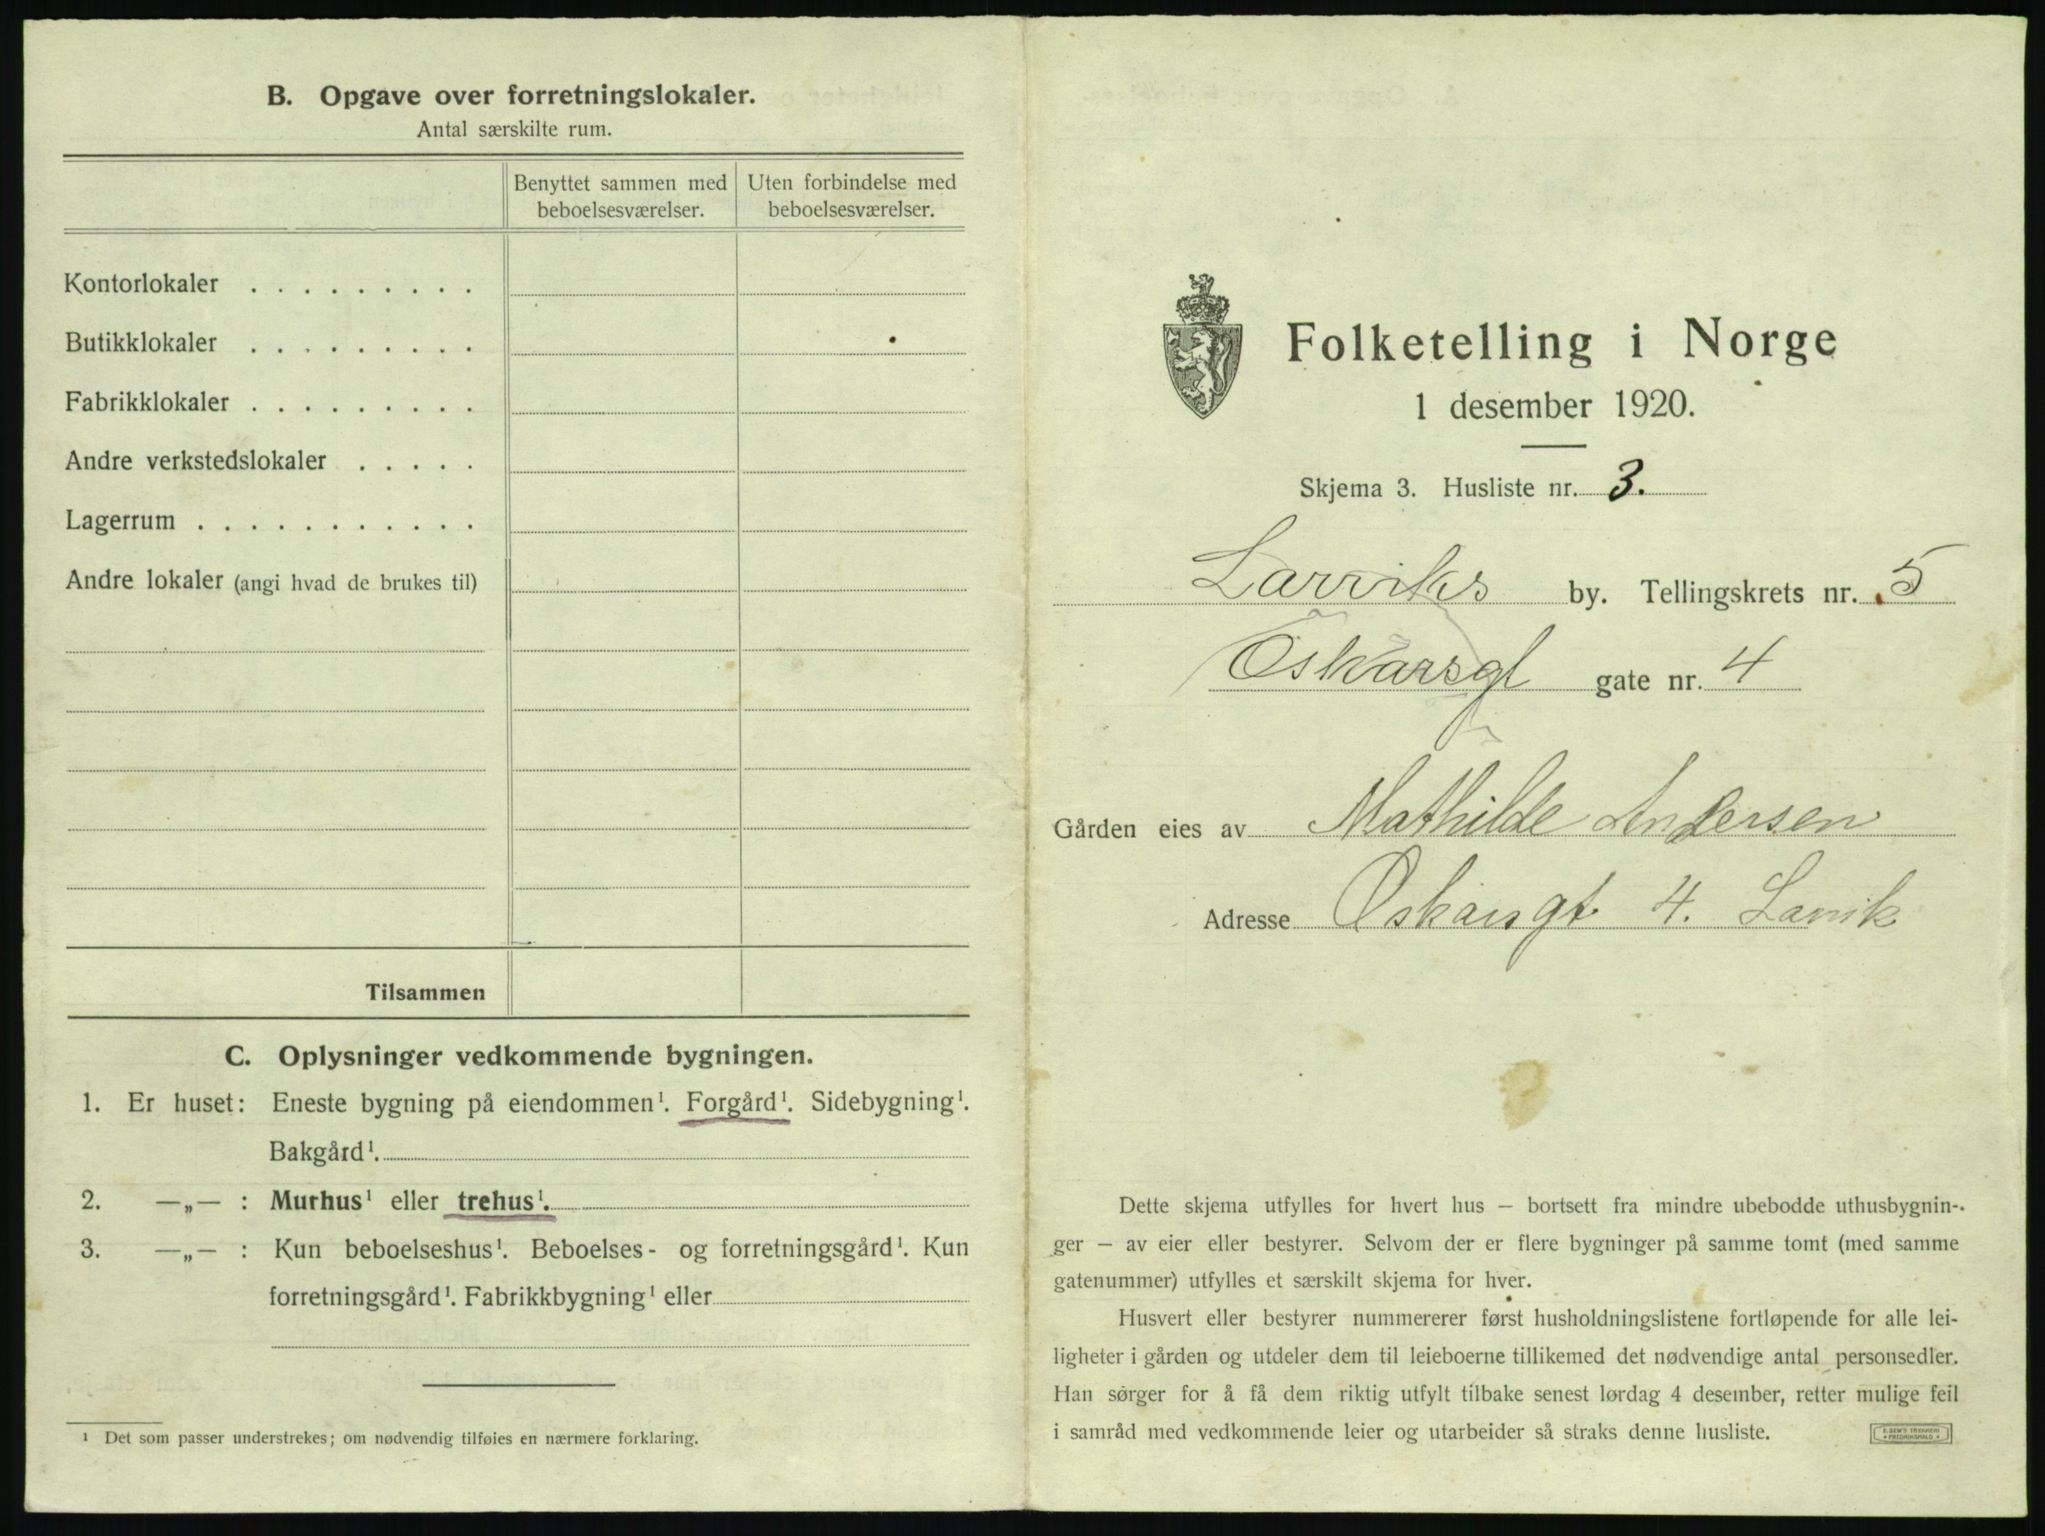 B. Opgave over forretningslokaler.
Antal særskilte rum.
Benyttet sammen med beboelsesværelser.
Uten forbindelse med beboelsesværelser.
Kontorlokaler . . . . . . . . .
Butikklokaler . . . . . . . . .
Fabrikklokaler . . . . . . . . .
Andre verkstedslokaler . . . . .
Lagerrum . . . . . . . . . . .
Andre lokaler (angi hvad de brukes til)
Tilsammen
C. Oplysninger vedkommende bygningen.
1. Er huset: Eneste bygning på eiendommen¹. Forgård¹. Sidebygning¹.
Bakgård¹.
2. —„— : Murhus¹ eller trehus¹.
3. —„— : Kun beboelseshus¹. Beboelses- og forretningsgård¹. Kun
forretningsgård¹. Fabrikkbygning¹ eller
¹ Det som passer understrekes; om nødvendig tilføies en nærmere forklaring.
Folketelling i Norge
1 desember 1920.
Skjema 3. Husliste nr. 3.
Larviks by. Tellingskrets nr. 5
Oskarsgt gate nr. 4
Gården eies av Mathilde Andersen
Adresse Oskarsgt 4. Larvik
Dette skjema utfylles for hvert hus – bortsett fra mindre ubebodde uthusbygnin-
ger – av eier eller bestyrer. Selvom der er flere bygninger på samme tomt (med samme
gatenummer) utfylles et særskilt skjema for hver.
Husvert eller bestyrer nummererer først husholdningslistene fortløpende for alle lei-
ligheter i gården og utdeler dem til leieboerne tillikemed det nødvendige antal personsedler.
Han sørger for å få dem riktig utfylt tilbake senest lørdag 4 desember, retter mulige feil
i samråd med vedkommende leier og utarbeider så straks denne husliste.